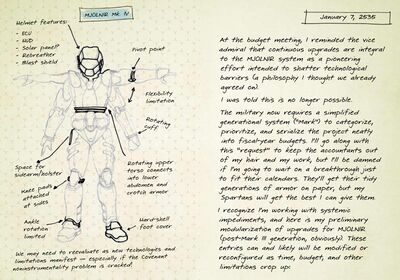 MJOLNIR MK IV
Helmet features:
- ECU
- HUD
- Solar panel?
- Rebreather
- Blast shield
Pivot point
Flexibility
limitation
Rotating
cuff
Space for
sidearm/holster
Rotating upper
torso connects
into lower
abdomen and
crotch armor
Knee pads
attached
at sides
Ankle
rotation
limited
Hard-shell
foot cover
We may need to reevaluate as new technologies and
limitations manifest — especially if the Covenant
noninstrumentality problem is cracked.
January 7, 2535
At the budget meeting, I reminded the vice
admiral that continuous upgrades are integral
to the MJOLNIR system as a pioneering
effort intended to shatter technological
barriers (a philosophy I thought we already
agreed on).
I was told this is no longer possible.
The military now requires a simplified
generational system ("Mark") to categorize,
prioritize, and serialize the project neatly
into fiscal-year budgets. I'll go along with
this "request" to keep the accountants out
of my hair and my work, but I'll be damned
if I'm going to wait on a breakthrough just
to fit their calendars. They'll get their tidy
generations of armor on paper, but my
Spartans will get the best I can give them.
I recognize I'm working with systemic
impediments, and here is my preliminary
modularization of upgrades for MJOLNIR
(post-Mark III generation, obviously). These
entries can and likely will be modified or
reconfigured as time, budget, and other
limitations crop up: